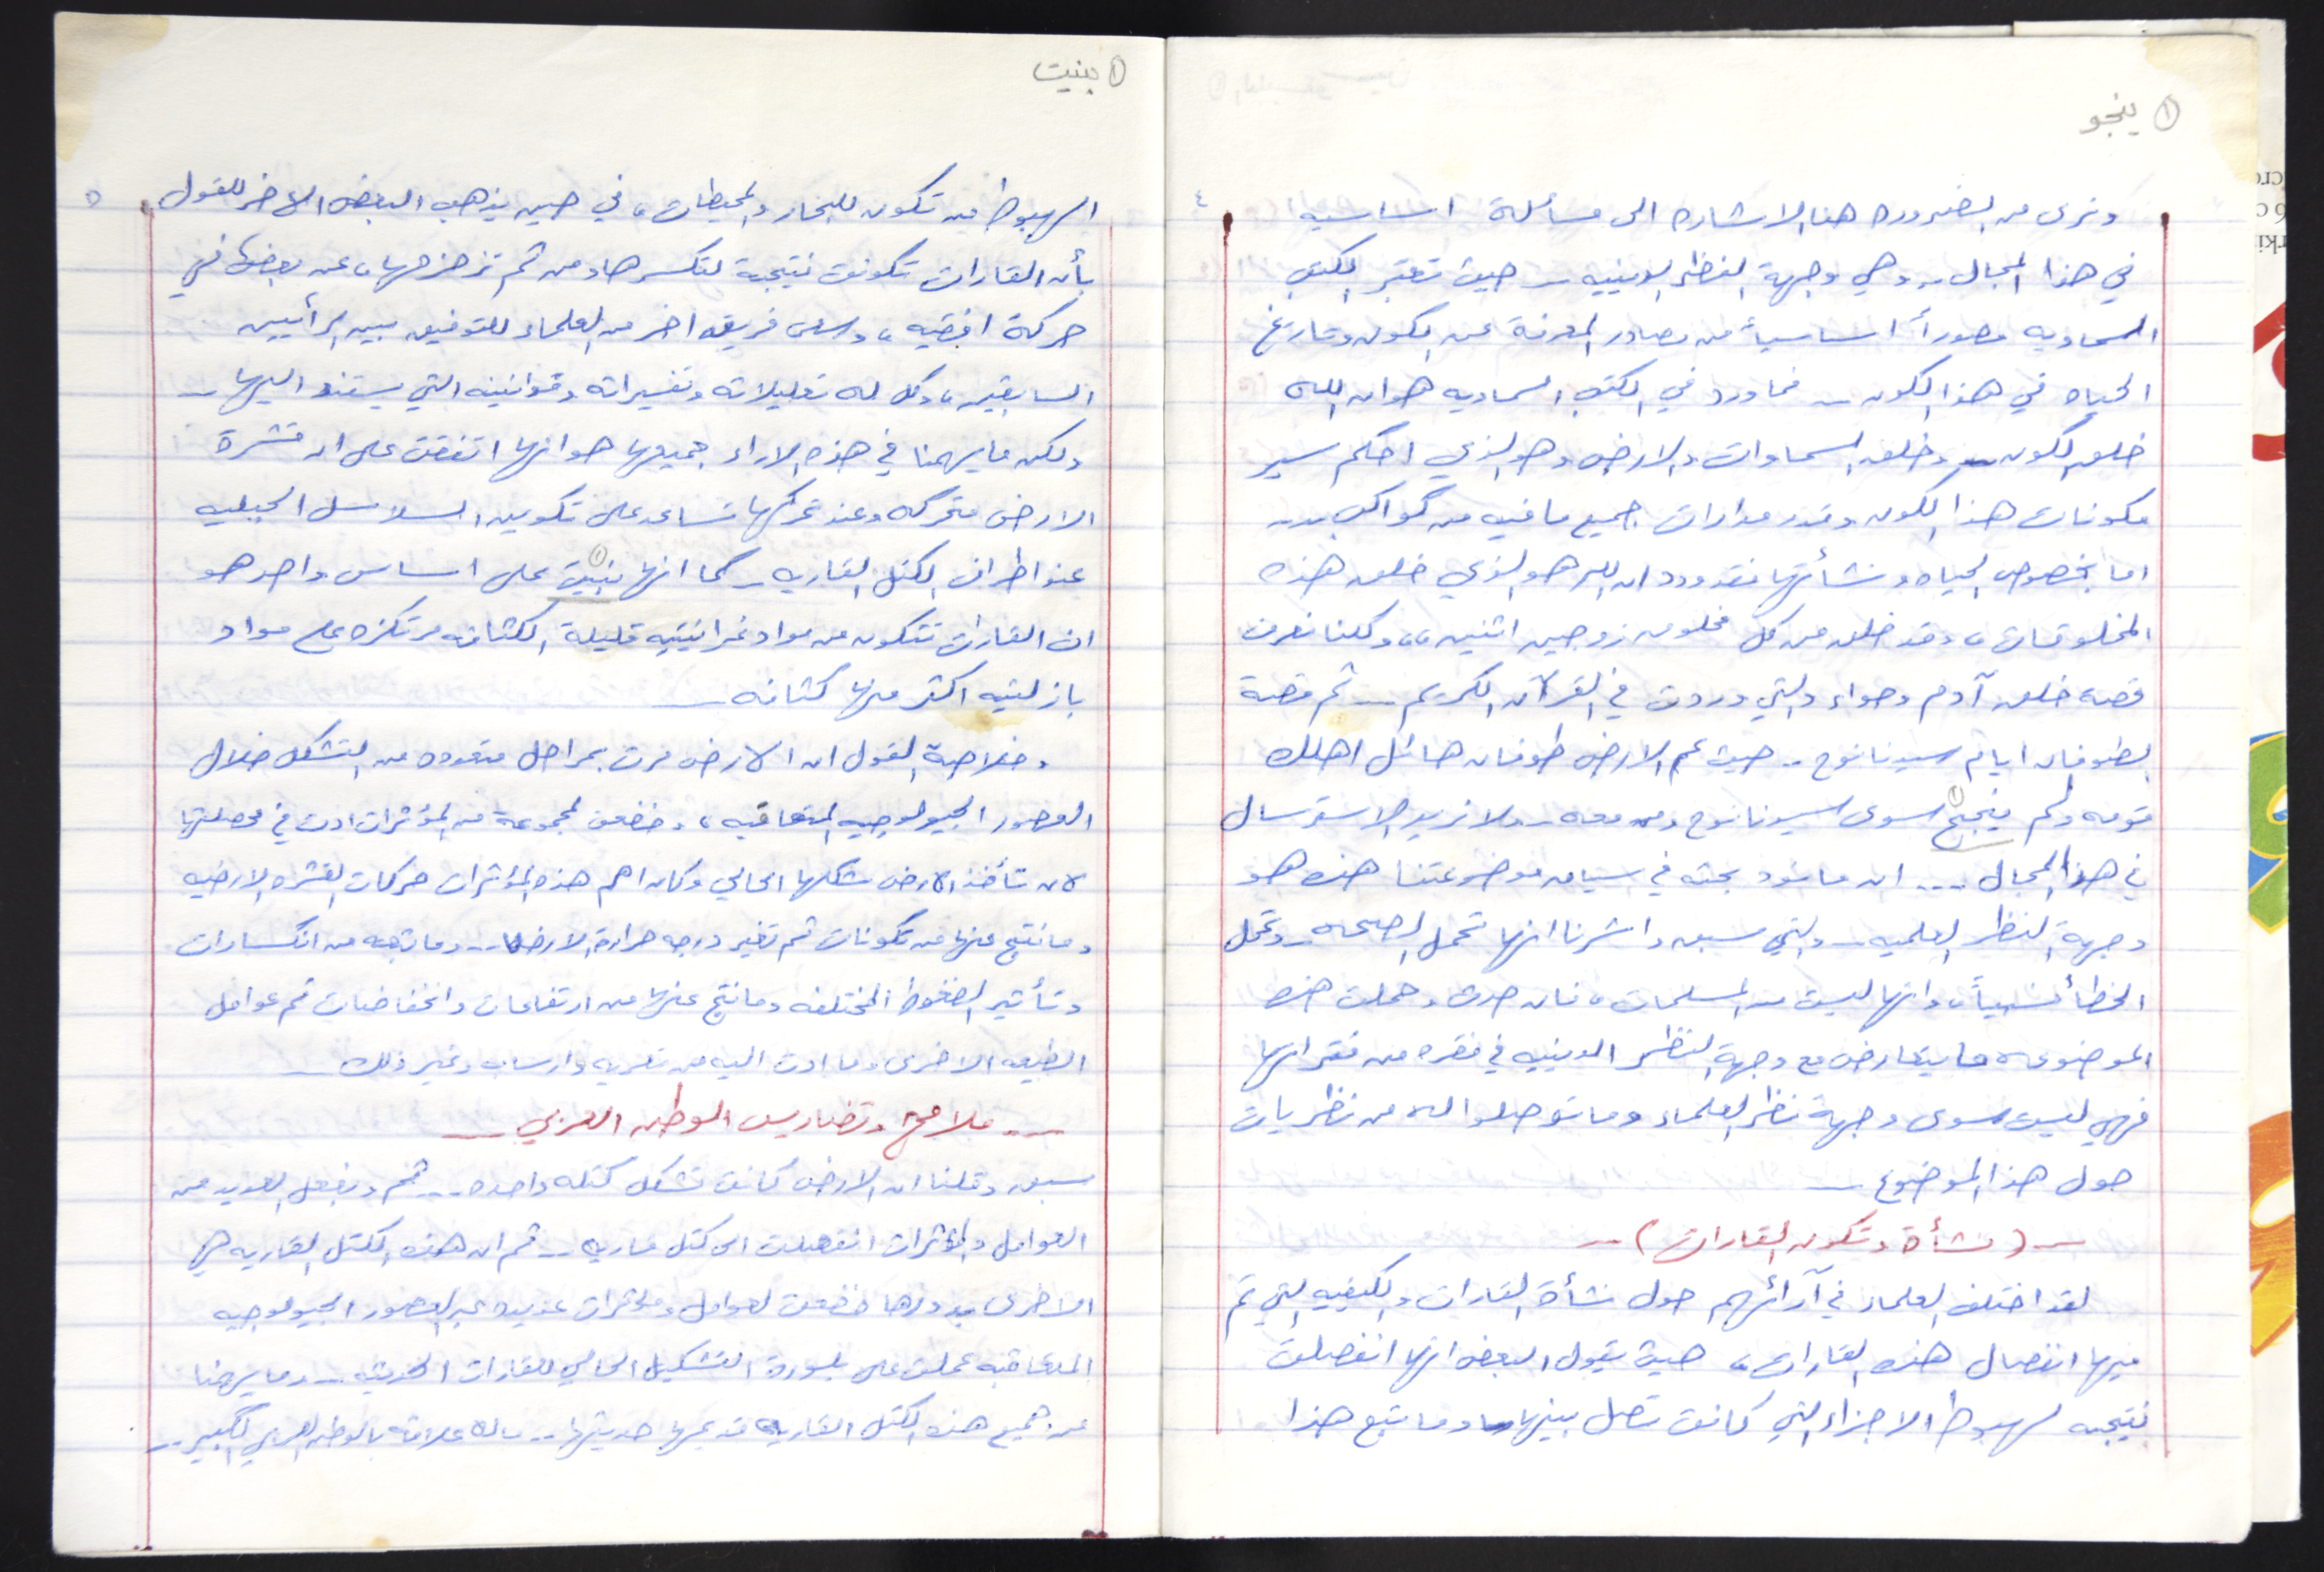 ① ينجو
٤
ونرى من الضروره هنا الاشاره الى مسألة اساسيه
في هذا المجال .. وهي وجهة النظر الدينيه .. حيث تعتبر الكتب
السماويه مصدراً اساسياً من مصادر المعرفة عن الكون وتاريخ
الحياه في هذا الكون .. فما ورد في الكتب السماويه هو ان الله
خلق الكون .. وخلق السماوات والارض وهو الذي احكم سير
مكونات هذا الكون وقدر مدارات جميع ما فيه من كواكب ..
اما بخصوص الحياه ونشأتها فقد ورد ان الله هو الذي خلق هذه
المخلوقات ، وقد خلق من كل مخلوق زوجين اثنين ،، وكلنا نعرف
قصة خلق آدم وحواء والتي وردت في القرآن الكريم .. ثم قصة
الطوفان ايام سيدنا نوح .. حيث عم الارض طوفان هائل اهلك
قومه ولم ينجح ① سوى سيدنا نوح ومن معه .. ولا نريد الاسترسال
في هذا المجال .... ان ما نود بحثه في سياق موضوعتنا هذه هو
وجهة النظر العلميه .. والتي سبق واشرنا انها تحمل الصحه .. وتحمل
الخطأ نسبياً ، وانها ليست من المسلمات ، فان حدث وحملت هذه
الموضوعه ما يتعارض مع وجهة النظر الدينيه في فقره من فقراتها
فهي ليست سوى وجهة نظر العلماء وما توصلوا له من نظريات
حول هذا الموضوع ..
.. ( نشأة وتكون القارات ) ..
لقد اختلف العلماء في آرائهم حول نشأة القارات والكيفيه التي تم
فيها انفصال هذه القارات ، حيث يقول البعض انها انفصلت
نتيجه لهبوط الاجزاء التي كانت تصل بينها وما تبع هذا
① بنيت
٥
الهبوط من تكون للبحار والمحيطات ، في حين يذهب البعض الاخر للقول
بأن القارات تكونت نتيجة لتكسرها ومن ثم تزحزحها ، عن بعضها في
حركة افقيه ، وسعى فريق اخر من العلماء للتوفيق بين الرأيين
السابقين ، وكل له تعليلاته وتفسيراته وقوانينه التي يستند اليها ..
ولكن ما يهمنا في هذه الاراء جميعها هو انها اتفقت على ان قشرة
الارض متحركه وعند تحركها تساعد على تكوين السلاسل الجبليه
عند اطراف الكتل القاريه .. كما انها بنيت ① على اساس واحد هو
ان القارات تتكون من مواد غرانيتيه قليلة الكثافه مرتكزه على مواد
بازلتيه اكثر منها كثافه ..
وخلاصة القول ان الارض مرت بمراحل متعدده من التشكل خلال
العصور الجيولوجيه المتعاقبه ، وخضعت لمجموعة من المؤثرات ادت في محصلتها
لان تأخذ الارض شكلها الحالي وكان اهم هذه المؤثرات حركات القشره الارضيه
وما نتج عنها من تكونات ثم تغير درجه حرارة الارض .. وما تبعه من انكسارات
وتأثير الضغوط المختلفه وما نتج عنها من ارتفاعات وانخفاضات ثم عوامل
الطبيعه الاخرى وما ادت اليه من تعريه وارساب وغير ذلك ..
... ملامح وتضاريس الوطن العربي ..
سبق وقلنا ان الارض كانت تشكل كتله واحده ... ثم وبفعل العديد من
العوامل والمؤثرات انفصلت الى كتل قاريه .. ثم ان هذه الكتل القاريه هي
الاخرى بدورها خضعت لعوامل ومؤثرات عديده عبر العصور الجيولوجيه
المتعاقبه عملت على بلورة التشكيل الحالي للقارات الحديثه .. وما يهمنا
من جميع هذه الكتل القاريه قديمها حديثها .. ماله علاقه بالوطن العربي الكبير ..